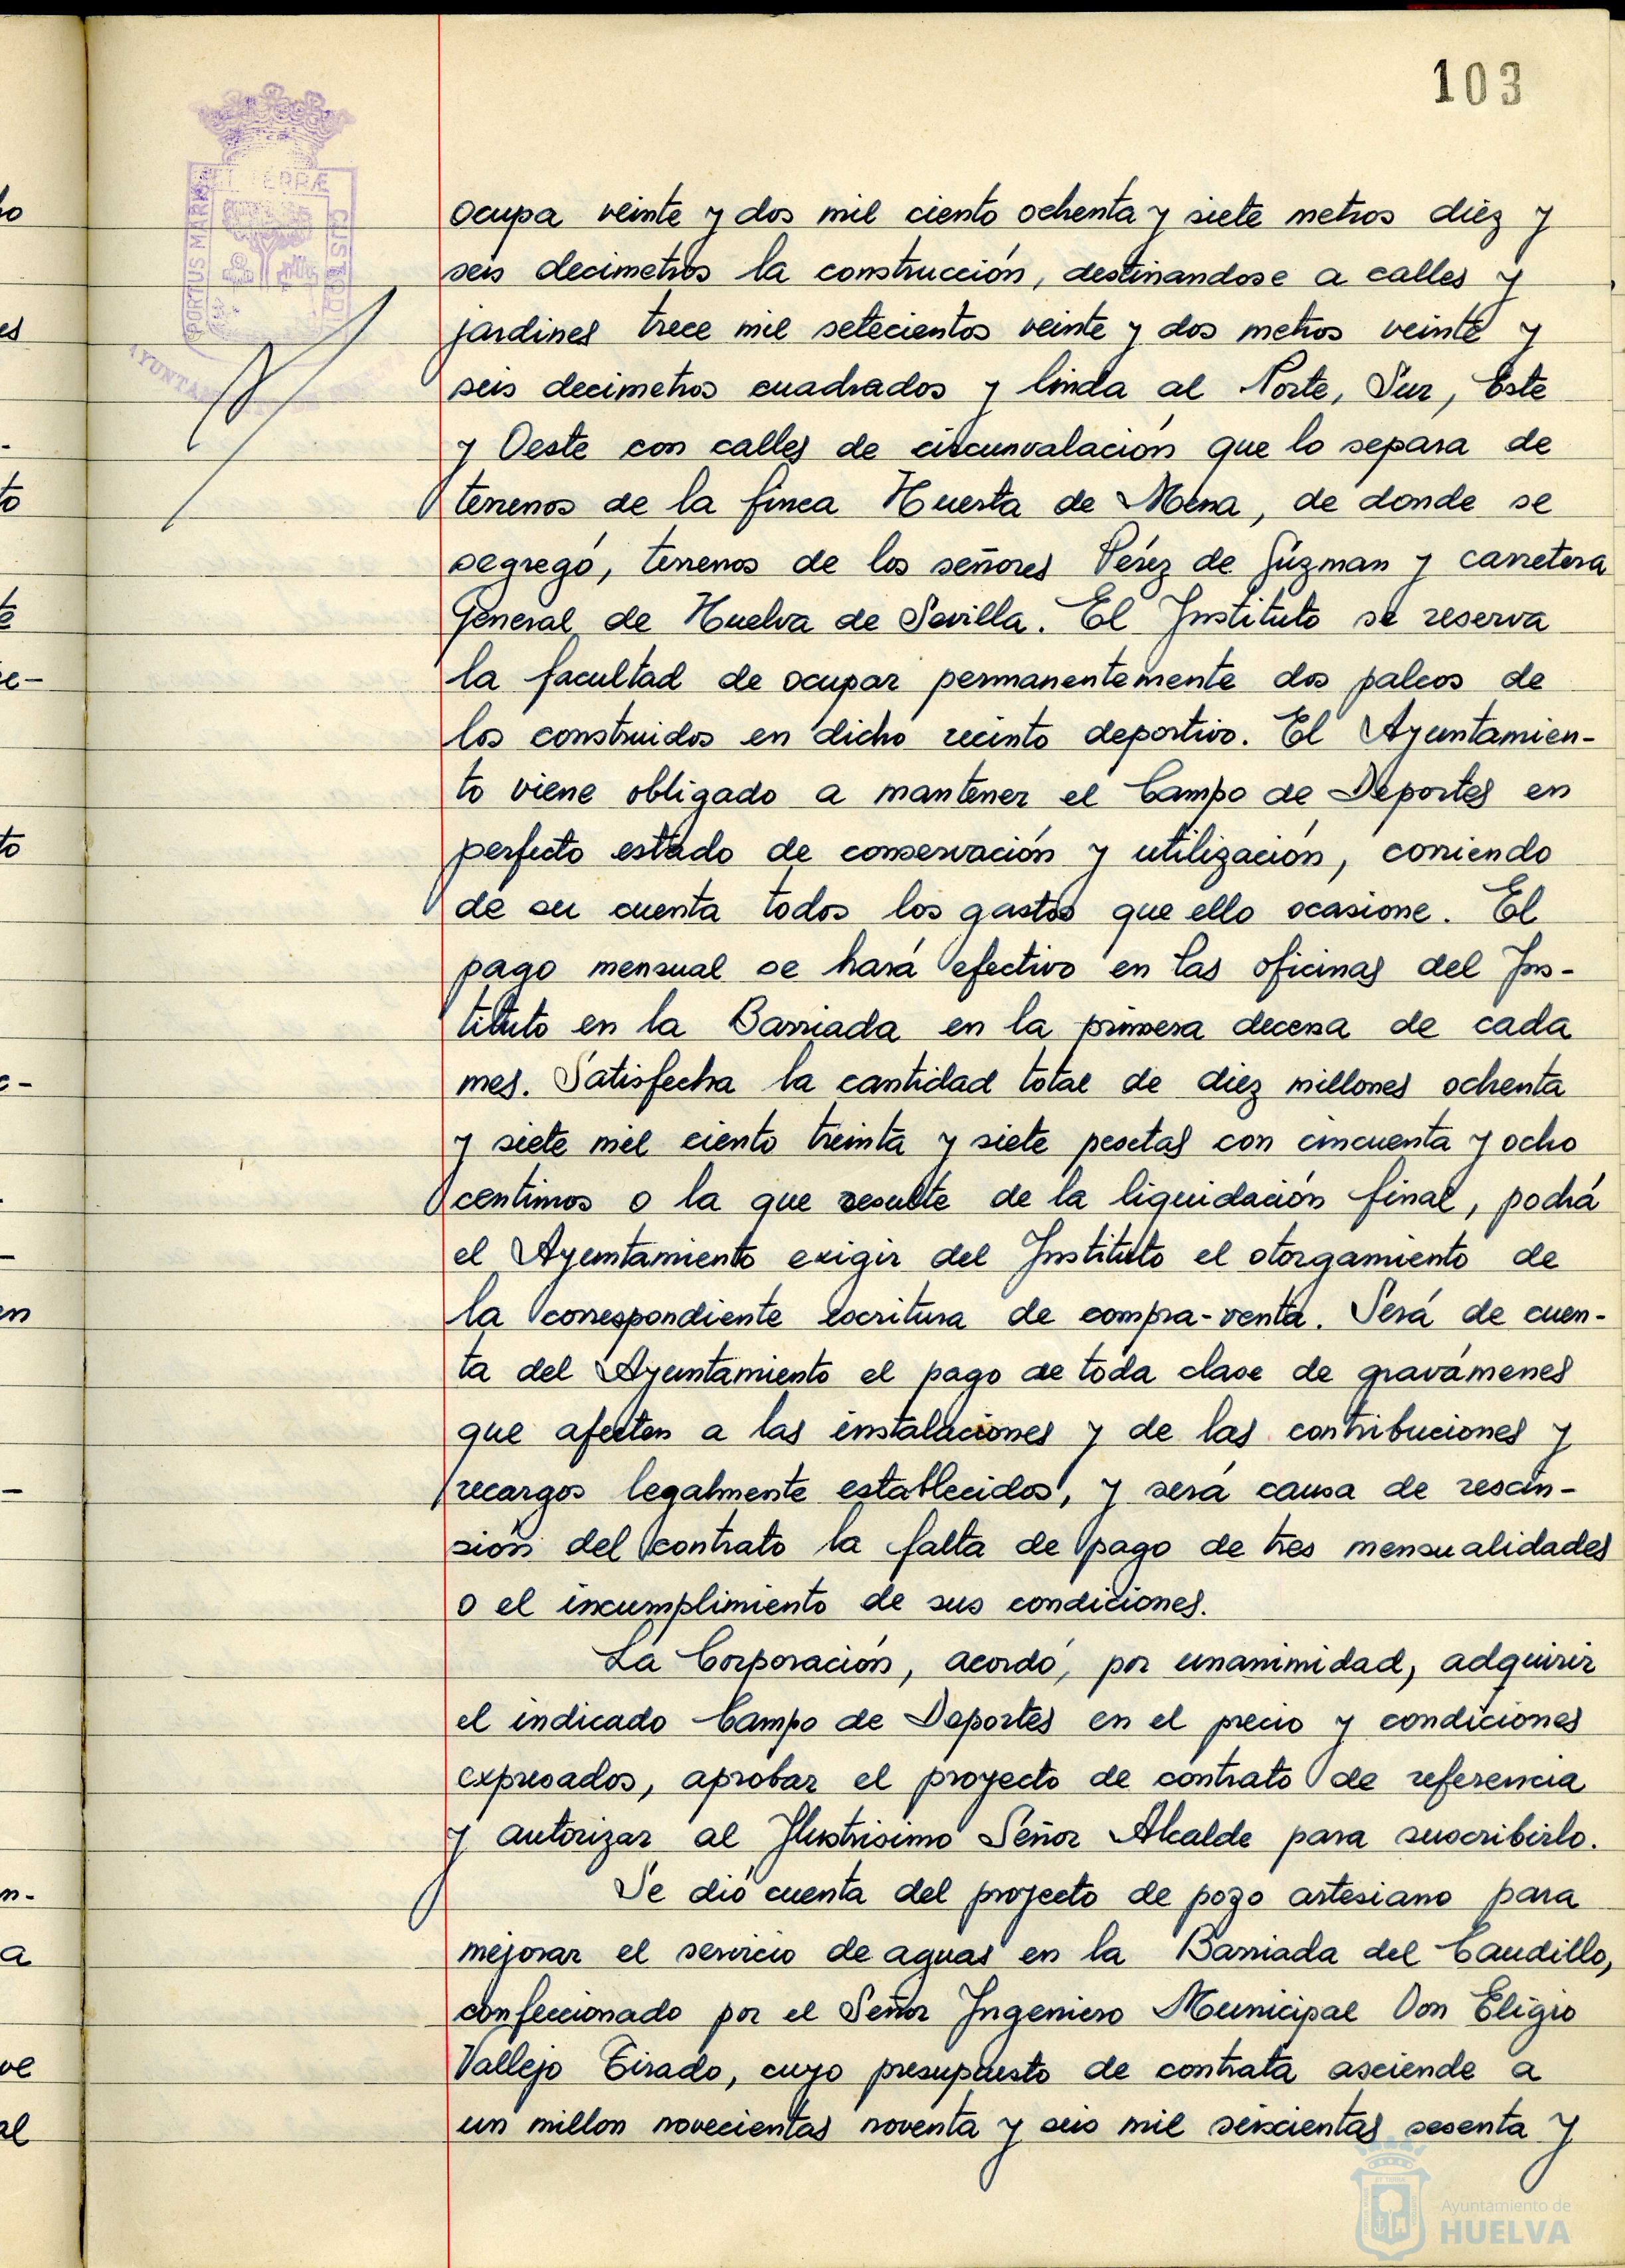 103
ET TERRÆ
PORTUS MARIS
CUSTODI
AYUNTAM
ocupa veinte y dos mil ciento ochenta y siete metros diez y
seis decimetros la construcción, destinandose a calles y
jardines trece mil setecientos veinte y dos metros veinte y
seis decimetros cuadrados y linda al Norte, Sur, Este
y Oeste con calles de circunvalación que lo separa de
terrenos de la finca Huerta de Mena, de donde se
segregó, terrenos de los señores Pérez de Gúzman y carretera
General de Huelva de Sevilla. El Instituto se reserva
la facultad de ocupar permanentemente dos palcos de
los construidos en dicho recinto deportivo. El Ayuntamien-
to viene obligado a mantener el Campo de Deportes en
perfecto estado de conservación y utilización, corriendo
de su cuenta todos los gastos que ello ocasione. El
pago mensual se hará efectivo en las oficinas del Ins-
tituto en la Barriada en la primera decena de cada
mes. Satisfecha la cantidad total de diez millones ochenta
y siete mil ciento treinta y siete pesetas con cincuenta y ocho
centimos o la que resulte de la liquidación final, podrá
el Ayuntamiento exigir del Instituto el otorgamiento de
la correspondiente escritura de compra-venta. Será de cuen-
ta del Ayuntamiento el pago de toda clase de gravámenes
que afecten a las instalaciones y de las contribuciones y
recargos legalmente establecidos, y será causa de rescin-
sión del contrato la falta de pago de tres mensualidades
o el incumplimiento de sus condiciones.
La Corporación, acordó, por unanimidad, adquirir
el indicado Campo de Deportes en el precio y condiciones
expresados, aprobar el proyecto de contrato de referencia
y autorizar al Ilustrisimo Señor Alcalde para suscribirlo.
Se dió cuenta del proyecto de pozo artesiano para
mejorar el servicio de aguas en la Barriada del Caudillo,
confeccionado por el Señor Ingeniero Municipal Don Eligio
Vallejo Tirado, cuyo presupuesto de contrata asciende a
un millon novecientas noventa y seis mil seiscientas sesenta y
Ayuntamiento de
HUELVA